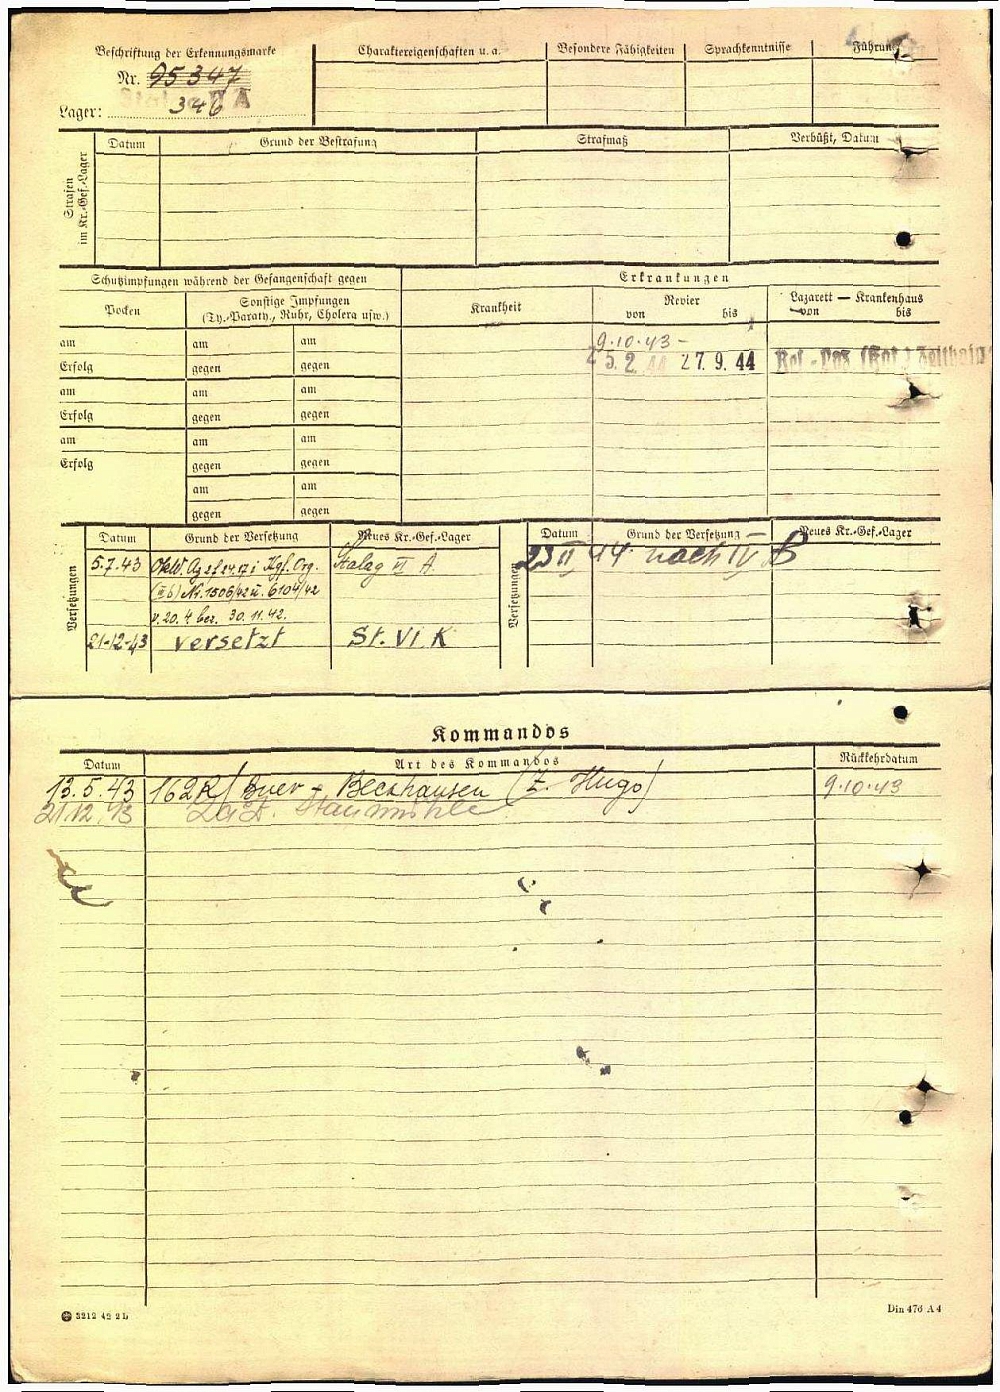 Beschriftung der Erkennungsmarke
Nr. 95347
Lager: 346
Charaktereigenschaften u. a.
Besondere Fähigkeiten
Sprachkenntnisse
Führung
Strafen im Kr.-Gef.-Lager
Datum
Grund der Bestrafung
Strafmaß
Verbüßt, Datum
Schutzimpfungen während der Gefangenschaft gegen
Erkrankungen
Pocken
Sonstige Impfungen
(Ty.-Paraty., Ruhr, Cholera usw.)
Krankheit
Revier
von bis
Lazarett — Krankenhaus
von bis
am am am
9.10.43 -
Erfolg gegen gegen
25.2.44 27.9.44 Res.-Laz. (Kgf.) Zeithain
am am am
Erfolg gegen gegen
am am am
Erfolg gegen gegen
am am
gegen gegen
Versetzungen
Datum Grund der Versetzung Neues Kr.-Gef.-Lager
5.7.43 OKW. Az 2f Kgf. Org. Stalag VI A
(III b) Nr. 1506/42 u. 6104/42
v. 20.4 bez. 30.11.42.
21-12-43 versetzt St. VI K
Versetzungen
Datum Grund der Versetzung Neues Kr.-Gef.-Lager
23 II 44 nach IV B
Kommandos
Datum Art des Kommandos Rückkehrdatum
13.5.43 162R/ Buer - Beckhausen (Z. Hugo) 9.10.43
21.12.43 Laz. Staumühle
3212 42 2L
Din 476 A4